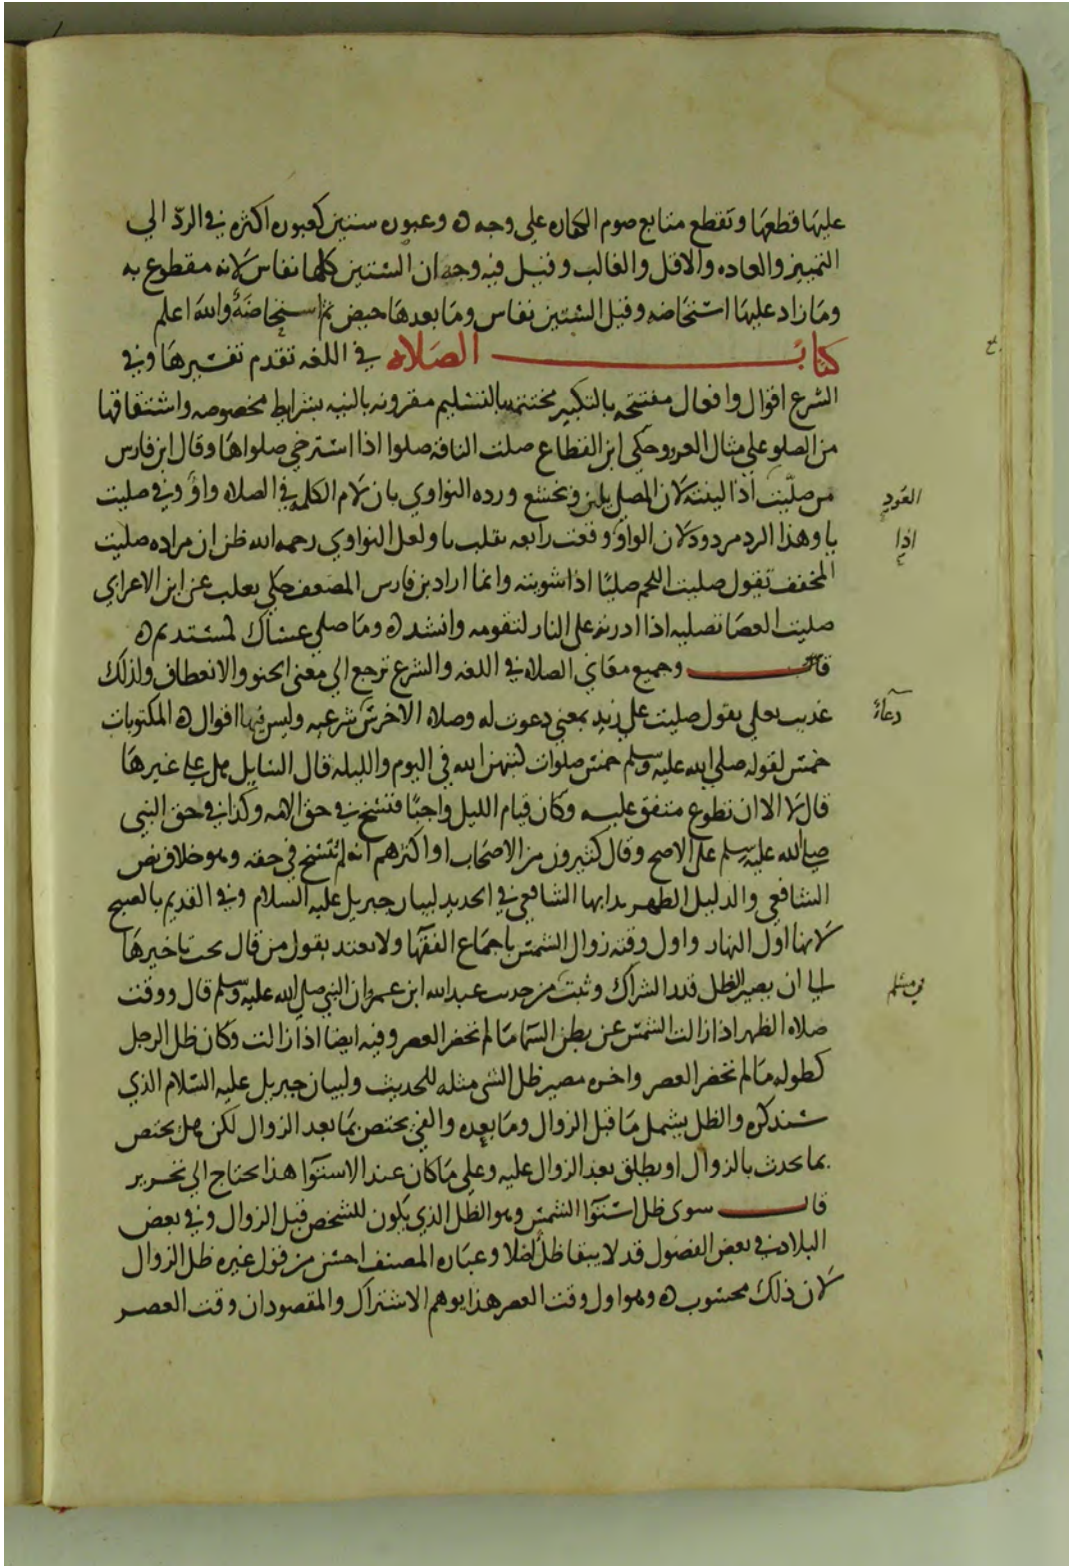 عليها قطعها وتقطع متابع صوم الكفاره علي وجه ه وعبوره ستين كعبوره اكثره في الرد الي
التمييز والعاده والاقل والغالب وقيل فيه وجه ان الستين كلها نفاس لانه مقطوع به
وما زاد عليها استحاضه وقيل الستين نفاس وما بعدها حيض ثم استحاضة والله اعلم
كتاب الصلاه في اللغه تقدم تفسيرها وفي
الشرع اقوال وافعال مفتتحه بالتكبير مختتمه بالتسليم مقرونه بالنيه بشرايط مخصوصه واشتقاقها
من الصلو علي مثال العرو وحكي ابن القطاع صلت الناقه صلوا اذا استرخي صلواها وقال ابن فارس
من صليت اذا لينته لان المصلي يلين ويخشع ورده النواوي بان لام الكلمه في الصلاه واو وفي صليت
يا وهذا الرد مردود لان الواو وقعت رابعه بقلب يا ولعل النواوي رحمه الله ظن ان مراده صليت
المخفف تقول صليت اللحم صليا اذا شويته وانما اراد بن فارس المضعف حكي ثعلب عن ابن الاعرابي
صليت العصا تصليه اذا ادرته علي النار لتقومه وانشد ه وما صلي عصاك كمستديم ه
قال وجميع معاني الصلاه في اللغه والشرع ترجع الي معني الحنو والانعطاف ولذلك
عديت بعلي يقول صليت علي زيد بمعني دعوت له وصلاه الاخرس شرعيه وليس فيها اقوال ه المكتوبات
خمس لقوله صلي الله عليه وسلم خمس صلوات كتبهن الله في اليوم والليله قال السايل هل علي غيرها
قال لا الا ان تطوع متفق عليه وكان قيام الليل واجبا فنسخ في حق الامه وكذا في حق النبي
صلي الله عليه وسلم علي الاصح وقال كثيرون من الاصحاب او اكثرهم انه لم ينسخ في حقه وهو خلاف نص
الشافعي والدليل الظهر بدا بها الشافعي في الجديد لبيان جبريل عليه السلام وفي القديم بالصبح
لانها اول النهار واول وقته زوال الشمس باجماع الفقها ولا يعتد بقول من قال يجب تاخيرها
الي ان يصير الظل قدر الشراك وثبت من حديث عبد الله ابن عمرو ان النبي صلي الله عليه وسلم قال ووقت
صلاه الظهر اذا زالت الشمس عن بطن السما ما لم تحضر العصر وفيه ايضا اذا زالت وكان ظل الرجل
كطوله ما لم تحضر العصر واخره مصير ظل الشي مثله للحديث ولبيان جبريل عليه السلام الذي
سنذكره والظل يشمل ما قبل الزوال وما بعده والفي يختص بما بعد الزوال لكن هل يختص
بما يحدث بالزوال او يطلق بعد الزوال عليه وعلي ما كان عند الاستوا هذا يحتاج الي تحرير
قال سوي ظل استوا الشمس وهو الظل الذي يكون للشخص قبل الزوال وفي بعض
البلاد في بعض الفصول قد لا يبقا ظل اصلا وعباره المصنف احسن من قول غيره ظل الزوال
لان ذلك محسوب ه وهو اول وقت العصر هذا يوهم الاشتراك والمقصود ان وقت العصر
العود
اذا
دعاء
في مسلم